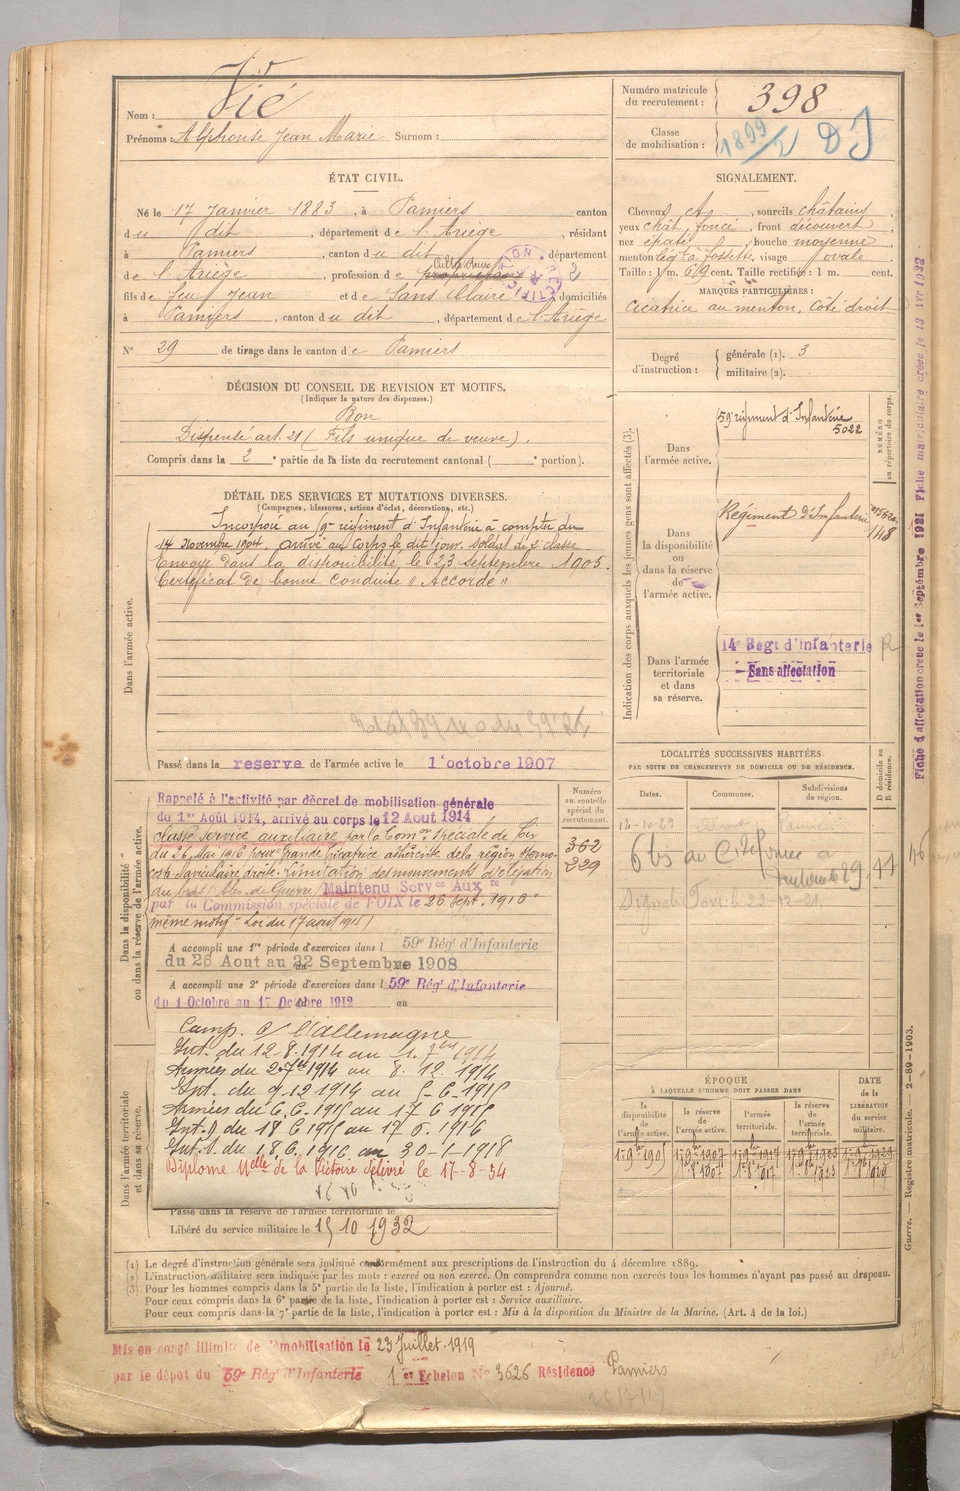 Nom : Vié
Prénoms : Alphonse Jean Marie Surnom :
Numéro matricule du recrutement : 398
Classe de mobilisation : 1899/2 DJ
ÉTAT CIVIL.
Né le 17 Janvier 1883, à Pamiers canton
du dit, département de l'Ariège, résidant
à Pamiers, canton du dit département
de l'Ariège, profession de Cultivateur
fils de feu Jean et de Sans Claire domiciliés
à Pamiers, canton du dit, département de l'Ariège
N° 29 de tirage dans le canton de Pamiers
SIGNALEMENT.
Cheveux et, sourcils châtains
yeux chât. foncé, front découvert
nez épaté, bouche moyenne
menton à fossette, visage ovale
Taille : 1 m. 619 cent. Taille rectifiée : 1 m. cent.
MARQUES PARTICULIÈRES :
Cicatrice au menton, côté droit
Degré d'instruction : générale (1). 3
militaire (2).
DÉCISION DU CONSEIL DE REVISION ET MOTIFS.
(Indiquer la nature des dispenses.)
Bon
Dispensé art. 21 (Fils unique de veuve).
Compris dans la 2e partie de la liste du recrutement cantonal ( e portion).
DÉTAIL DES SERVICES ET MUTATIONS DIVERSES.
(Campagnes, blessures, actions d'éclat, décorations, etc.)
Dans l'armée active.
Incorporé au 59e régiment d'Infanterie à compter du
14 Novembre 1904. arrivé au corps le dit jour. soldat de 2e classe
Envoyé dans la disponibilité le 23 septembre 1905.
Certificat de bonne conduite "Accordé"
Passé dans la réserve de l'armée active le 1 octobre 1907
Indication des corps auxquels les jeunes gens sont affectés (3).
NUMÉRO au répertoire du corps.
Dans l'armée active.
59e régiment d'Infanterie
5022
Dans la disponibilité ou dans la réserve de l'armée active.
Régiment d'Infanterie
148
Dans l'armée territoriale et dans sa réserve.
14e Regt d'Infanterie
Sans affectation
Fiche d'affectation créée le 1er Septembre 1921 Fiche matriculaire créée le 13
Dans la disponibilité ou dans la réserve de l'armée active.
Numéro au contrôle spécial du recrutement.
362
229
Rappelé à l'activité par décret de mobilisation générale
du 1er Août 1914, arrivé au corps le 12 Aout 1914
classé service auxiliaire par la Comm on spéciale de
du 26 Mai 1916 pour "Grande cicatrice adhérente de la région sterno
costo claviculaire droite. Limitation des mouvements d'élévation
du bras" Maintenu Servce Auxre
par la Commission spéciale de FOIX le 26 Sept. 1916
même motif "Loi du 17 aout 1915)
A accompli une 1re période d'exercices dans l 59e Rég' d'Infanterie
du 26 Aout au 22 Septembre 1908
A accompli une 2e période d'exercices dans l 59e Rég' d'Infanterie
du 1 Octobre au 17 Octobre 1912 au
LOCALITÉS SUCCESSIVES HABITÉES
PAR SUITE DE CHANGEMENTS DE DOMICILE OU DE RÉSIDENCE.
Dates. Communes. Subdivisions de région. D domicile ou R résidence.
Dans l'armée territoriale et dans sa réserve.
Camp. c/ l'allemagne
Int. du 12-8-1914 au 1-7bre 1914
Armées du 2-7bre 1914 au 8-12 1914
Int. du 9-12 1914 au 5-6-1915
Armées du 6.6.1915 au 17 6 1915
Int. du 18 6 1915 au 17 6.1916
Int. du 18.6.1916 au 30-1-1918
Diplome Melle de la Victoire délivré le 17-8-34
Passé dans la réserve de l'armée territoriale le
Libéré du service militaire le 15 10 1932
ÉPOQUE
À LAQUELLE L'HOMME DOIT PASSER DANS
la disponibilité de l'armée active. la réserve de l'armée active. l'armée territoriale. la réserve de l'armée territoriale.
DATE de la LIBÉRATION du service militaire.
Guerre. — Registre matricule. 2-89-1903.
(1) Le degré d'instruction générale sera indiqué conformément aux prescriptions de l'instruction du 4 décembre 1889.
(2) L'instruction militaire sera indiquée par les mots : exercé ou non exercé. On comprendra comme non exercés tous les hommes n'ayant pas passé au drapeau.
(3) Pour les hommes compris dans la 5e partie de la liste, l'indication à porter est : Ajourné.
Pour ceux compris dans la 6e partie de la liste, l'indication à porter est : Service auxiliaire.
Pour ceux compris dans la 7e partie de la liste, l'indication à porter est : Mis à la disposition du Ministre de la Marine. (Art. 4 de la loi.)
Mis en congé illimité de démobilisation le 23 Juillet 1919
par le dépot du 59e Rég' d'Infanterie 1er Echelon N° 3626 Résidence Pamiers